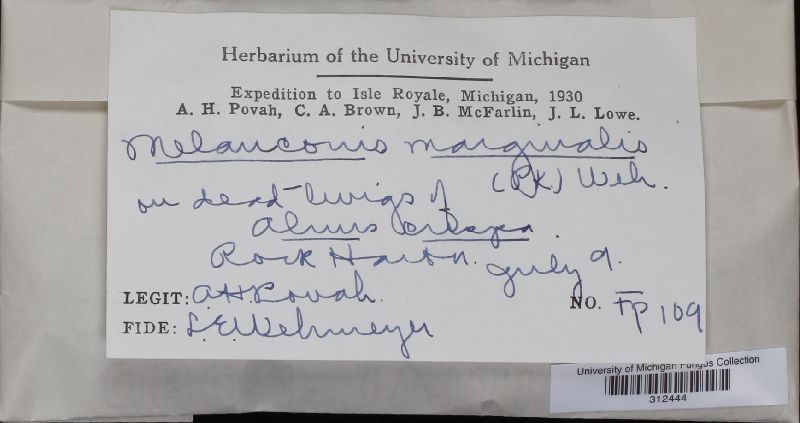 Herbarium of the University of Michigan
Expedition to Isle Royale, Michigan, 1930
A. H. Povah, C. A. Brown, J. B. McFarlin, J. L. Lowe.
Melanconis marginalis
(Pk) Weh.
on dead twigs of
Alnus crispa.
Rock Harbor. July 9.
LEGIT: A.H. Povah.
NO. Fp 109
FIDE: L.E. Wehmeyer
University of Michigan Fungus Collection
312444